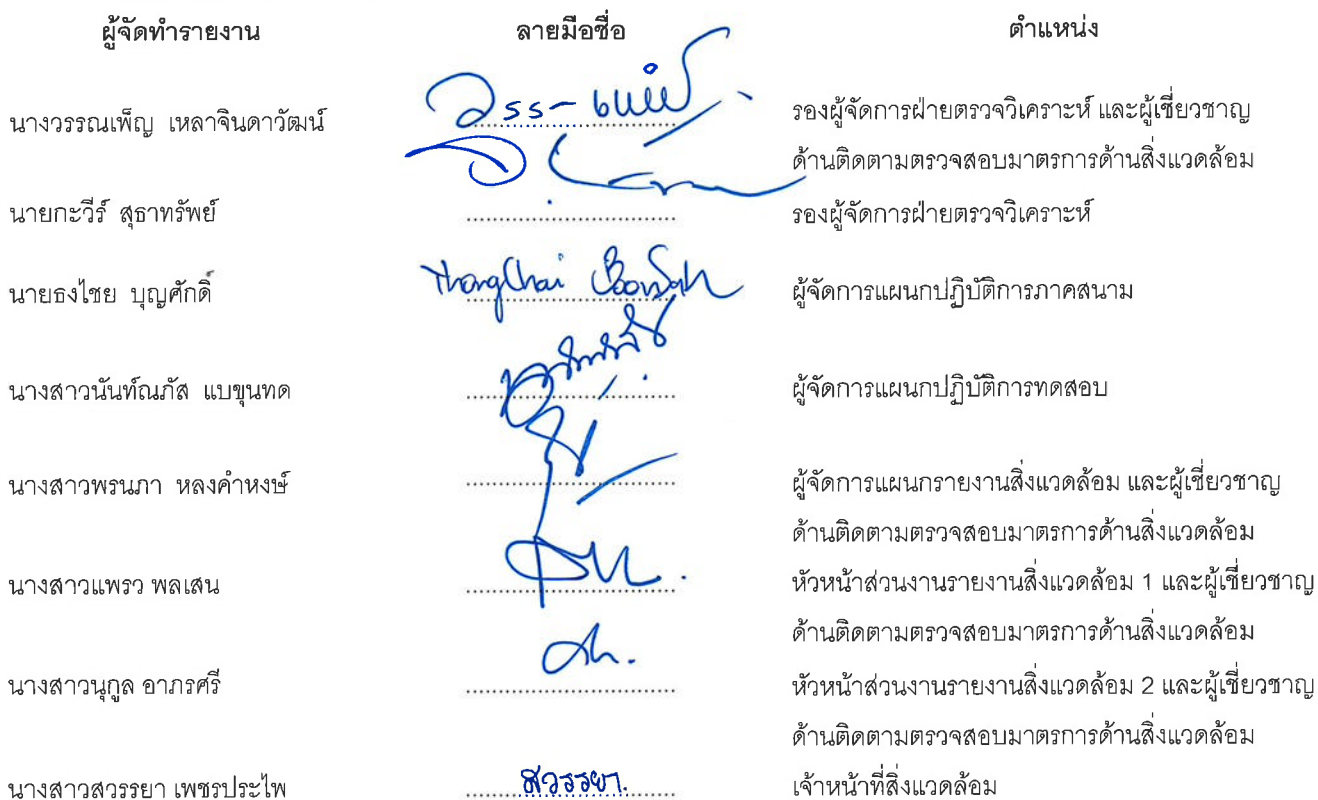 ผู้จัดทำรายงาน ลายมือชื่อ ตำแหน่ง
นางวรรณเพ็ญ เหลาจินดาวัฒน์ วรร- เพ็ญ รองผู้จัดการฝ่ายตรวจวิเคราะห์ และผู้เชี่ยวชาญ
ด้านติดตามตรวจสอบมาตรการด้านสิ่งแวดล้อม
นายกะวีร์ สุธาทรัพย์ รองผู้จัดการฝ่ายตรวจวิเคราะห์
นายธงไชย บุญศักดิ์ ThongChai Boonsak ผู้จัดการแผนกปฏิบัติการภาคสนาม
นางสาวนันท์ณภัส แบขุนทด ผู้จัดการแผนกปฏิบัติการทดสอบ
นางสาวพรนภา หลงคำหงษ์ ผู้จัดการแผนกรายงานสิ่งแวดล้อม และผู้เชี่ยวชาญ
ด้านติดตามตรวจสอบมาตรการด้านสิ่งแวดล้อม
นางสาวแพรว พลเสน หัวหน้าส่วนงานรายงานสิ่งแวดล้อม 1 และผู้เชี่ยวชาญ
ด้านติดตามตรวจสอบมาตรการด้านสิ่งแวดล้อม
นางสาวนุกูล อาภรศรี หัวหน้าส่วนงานรายงานสิ่งแวดล้อม 2 และผู้เชี่ยวชาญ
ด้านติดตามตรวจสอบมาตรการด้านสิ่งแวดล้อม
นางสาวสวรรยา เพชรประไพ สวรรยา. เจ้าหน้าที่สิ่งแวดล้อม